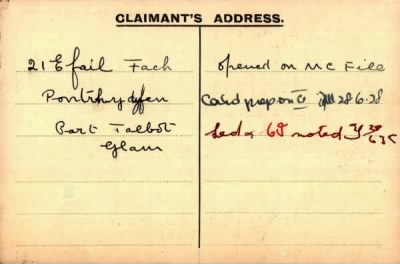 CLAIMANT'S ADDRESS.
21 Efail Fach
Pontrhydyfen
Port Talbot
Glam
opened on MC File
Card prep on 28.6.28
Led 69 noted